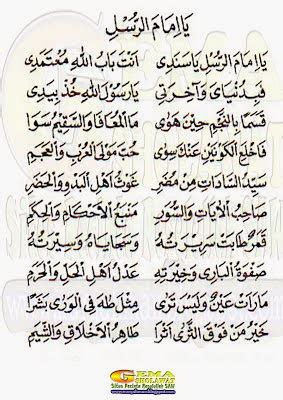 يَا اِمَامَ الرُّسْلِ
يَا اِمَامَ الرُّسْلِ يَاسَنَدِى اَنْتَ بَابُ اللهِ مُعْتَمَدِى
فَبِدُنْيَايَ وَآخِرَتِى يَارَسُوْلَ اللهِ خُذْ بِيَدِى
قَسَمًا بِالنَّجْمِ حِيْنَ هَوٰى مَا الْمُعَافٰى وَالسَّقِيْمُ سَوَا
فَاخْلَعِ الْكَوْنَيْنِ عَنْكَ سِوٰى حُبِّ مَوْلَى الْعُرْبِ وَالْعَجَمِ
سَيِّدُ السَّادَاتِ مِنْ مُضَرِ غَوْثُ اَهْلِ الْبَدْوِ وَالْحَضَرِ
صَاحِبُ الْآيَاتِ وَالسُّوَرِ مَنْبَعُ الْاَحْكَامِ وَالْحِكَمِ
قَمَرٌ طَابَتْ سَرِيْرَتُهُ وَسَجَايَاهُ وَسِيْرَتُهُ
صَفْوَةُ الْبَارِى وَخِيْرَتُهُ عَدْلُ اَهْلِ الْحِلِّ وَالْحَرَمِ
مَارَاَتْ عَيْنٌ وَلَيْسَ تَرٰى مِثْلَ طٰهَ فِى الْوَرٰى بَشَرًا
خَيْرُ مَنْ فَوْقَ الثَّرٰى اَثَرًا طَاهِرُ الْاَخْلَاقِ وَالشِّيَمِ
GEMA
SHOLAWAT
Situs Pecinta Rosulullah SAW